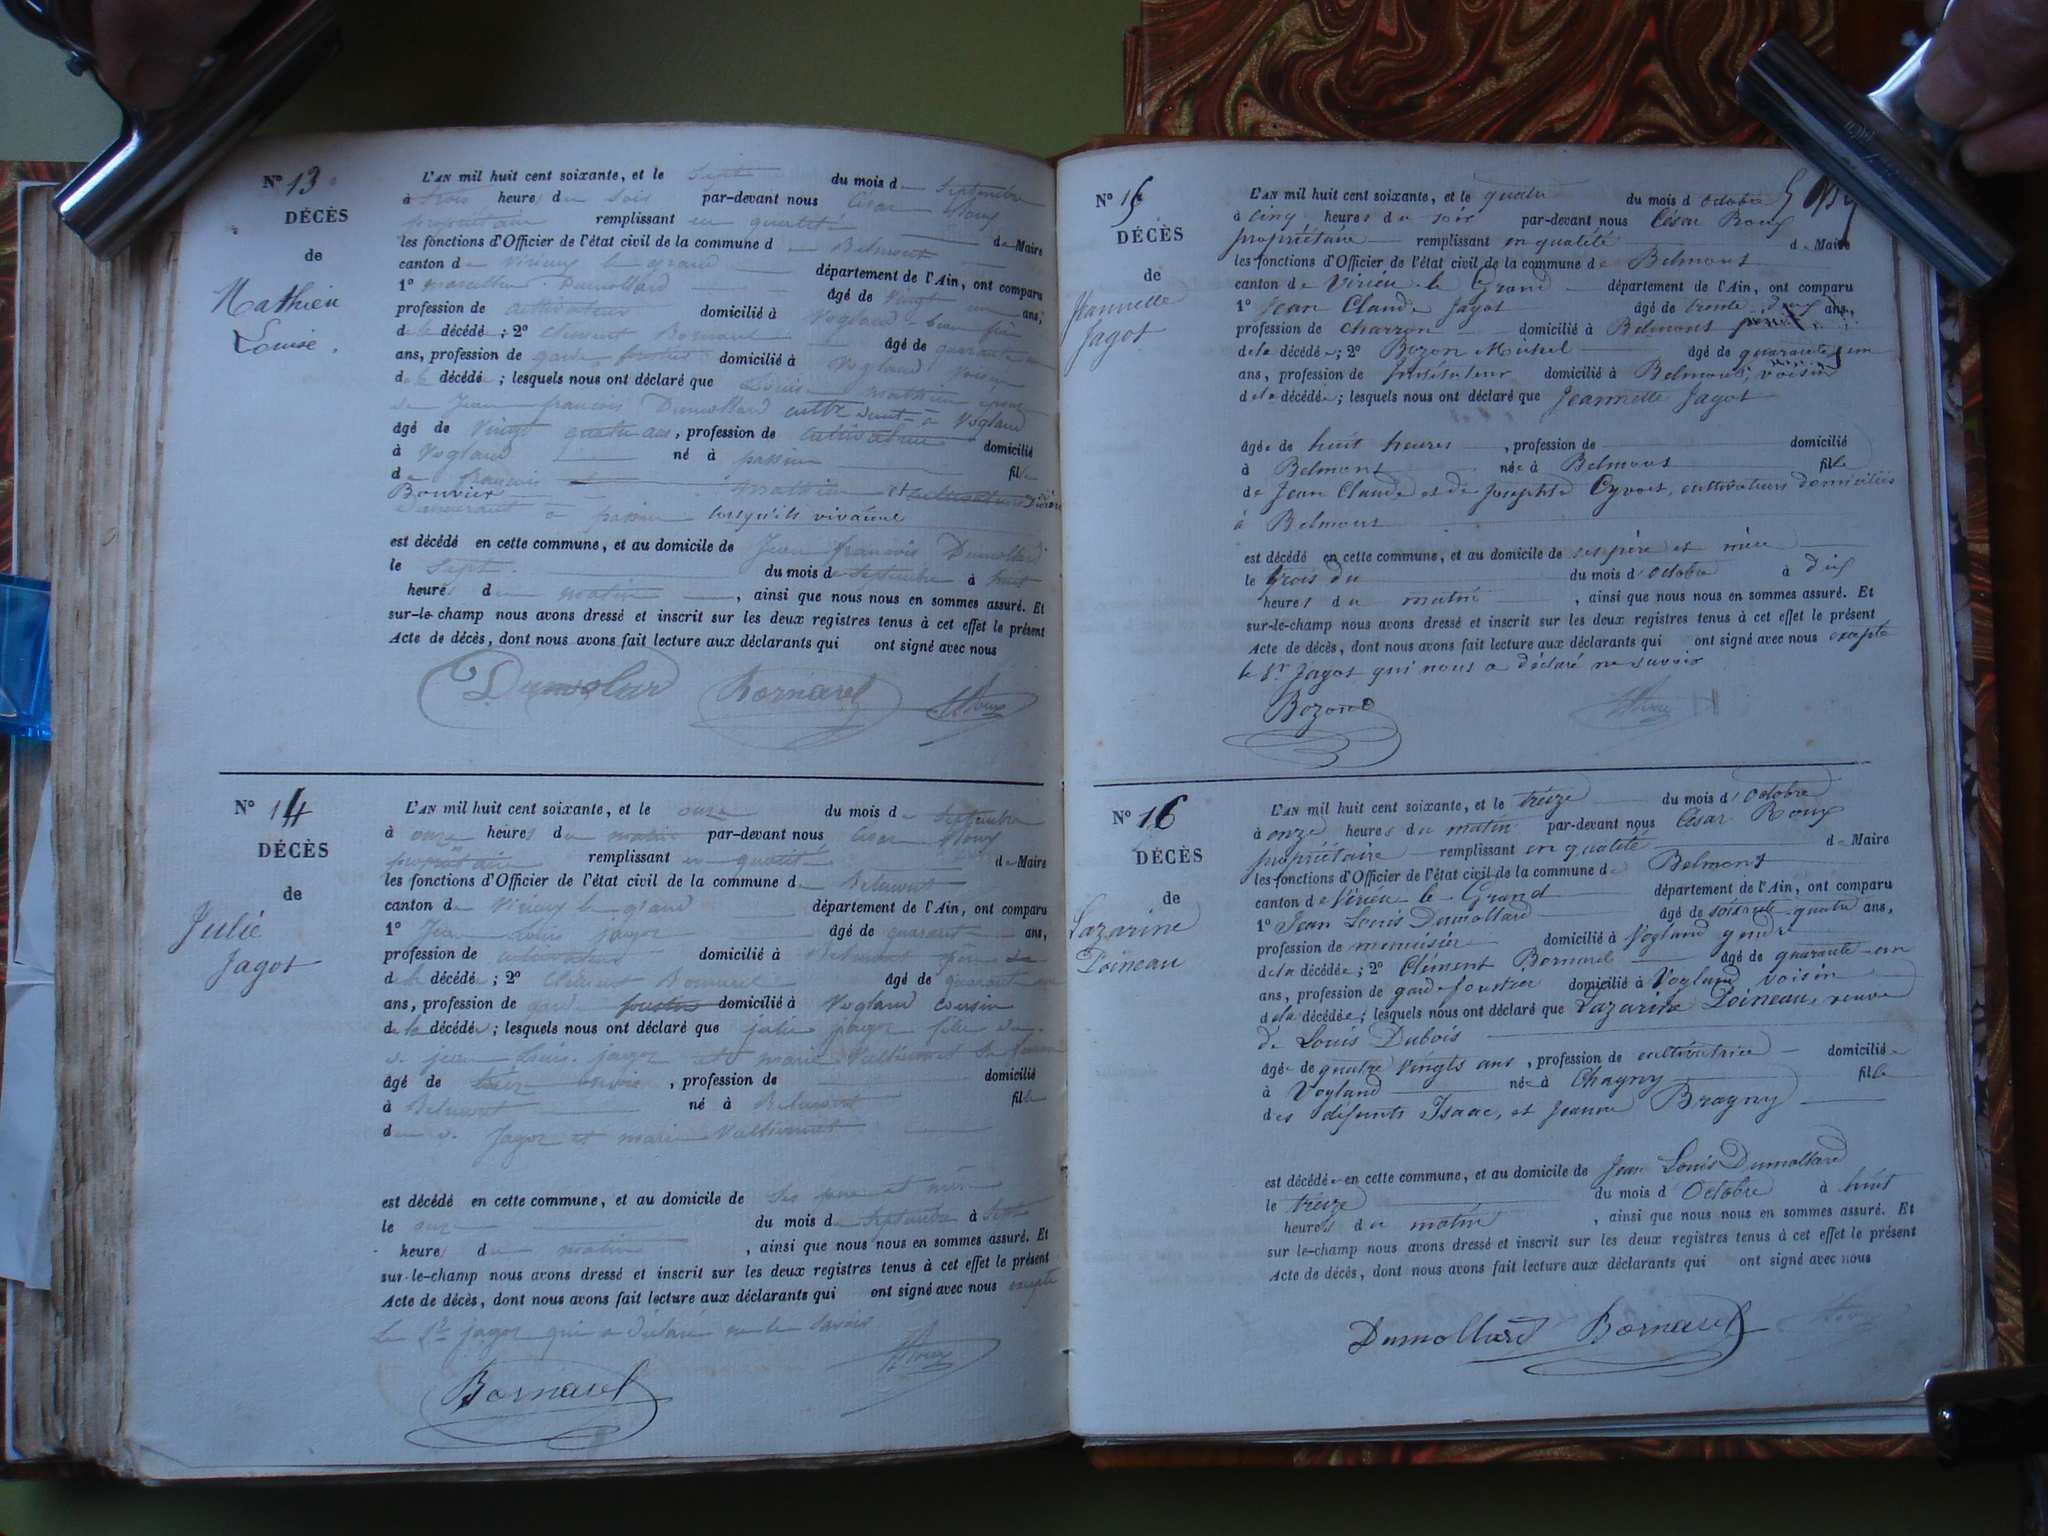 N° 13
DÉCÈS
de
Mathieu
Louise.
L'AN mil huit cent soixante, et le sept du mois de Septembre
à trois heures du soir par-devant nous César Roux
propriétaire remplissant en qualité de Maire
les fonctions d'Officier de l'état civil de la commune de Belmont
canton de Virieux le grand département de l'Ain, ont comparu
1° Dumollard âgé de vingt ans,
profession de cultivateur domicilié à Vogland beau frère
de la décédé; 2° Clément Bornarel âgé de quarante
ans, profession de garde domicilié à Vogland voisin
de la décédée; lesquels nous ont déclaré que Louise Mathieu épouse
de Jean françois Dumollard à Vogland
âgé de Vingt quatre ans, profession de cultivatrice domicilié
à Vogland né à passin fille
de françois Mathieu et
Bouvier
à passin lorsqu'ils vivaient
est décédé en cette commune, et au domicile de Jean françois Dumollard
le Sept du mois de Septembre à huit
heures du matin, ainsi que nous nous en sommes assuré. Et
sur-le-champ nous avons dressé et inscrit sur les deux registres tenus à cet effet le présent
Acte de décès, dont nous avons fait lecture aux déclarants qui ont signé avec nous
Dumolard Bornarel Roux
N° 14
DÉCÈS
de
Julie
Jagot
L'AN mil huit cent soixante, et le onze du mois de Septembre
à onze heures du matin par-devant nous César Roux
propriétaire remplissant en qualité de Maire
les fonctions d'Officier de l'état civil de la commune de Belmont
canton de Virieux le grand département de l'Ain, ont comparu
1° Jean Louis jagot âgé de quarante ans,
profession de cultivateur domicilié à Belmont père de
de la décédé; 2° Clément Bornarel âgé de quarante un
ans, profession de garde domicilié à Vogland cousin
de la décédée; lesquels nous ont déclaré que julie jagot fille
de jean Louis jagot et marie
âgé de, profession de domicilié
à Belmont né à Belmont fille
Jagot et marie
est décédé en cette commune, et au domicile de ses père et mère
le onze du mois de Septembre à Sept
heures du matin, ainsi que nous nous en sommes assuré. Et
sur-le-champ nous avons dressé et inscrit sur les deux registres tenus à cet effet le présent
Acte de décès, dont nous avons fait lecture aux déclarants qui ont signé avec nous excepté
le Sr jagot qui a déclaré ne le savoir
Bornarel Roux
N° 15
DÉCÈS
de
Jeannette
Jagot
L'AN mil huit cent soixante, et le quatre du mois d'octobre
à cinq heures du soir par-devant nous César Roux
propriétaire remplissant en qualité de Maire
les fonctions d'Officier de l'état civil de la commune de Belmont
canton de Virieu le Grand département de l'Ain, ont comparu
1° Jean Claude Jagot âgé de trente deux ans,
profession de charron domicilié à Belmont
de la décédée; 2° Bozon Michel âgé de quarante un
ans, profession de Instituteur domicilié à Belmont, voisin
de la décédée; lesquels nous ont déclaré que Jeannette Jagot
âgée de huit heures, profession de domicilié
à Belmont née à Belmont fille
de Jean Claude et de Josephte Cyvoct, cultivateurs domiciliés
à Belmont
est décédé en cette commune, et au domicile de ses père et mère
le trois du du mois d'Octobre à dix
heures du matin, ainsi que nous nous en sommes assuré. Et
sur-le-champ nous avons dressé et inscrit sur les deux registres tenus à cet effet le présent
Acte de décès, dont nous avons fait lecture aux déclarants qui ont signé avec nous excepté
le Sr Jagot qui nous a déclaré ne savoir
Bozon Roux
N° 16
DÉCÈS
de
Lazarine
Loineau
L'AN mil huit cent soixante, et le treize du mois d'Octobre
à onze heures du matin par-devant nous César Roux
propriétaire remplissant en qualité de Maire
les fonctions d'Officier de l'état civil de la commune de Belmont
canton de Virieu le Grand département de l'Ain, ont comparu
1° Jean Louis Dumollard âgé de soixante-quatre ans,
profession de menuisier domicilié à Vogland gendre
de la décédée; 2° Clément Bornarel âgé de quarante-un
ans, profession de garde-foustier domicilié à Vogland voisin
de la décédée; lesquels nous ont déclaré que Lazarine Loineau, veuve
de Louis Dubois
âgée de quatre vingts ans, profession de cultivatrice domiciliée
à Vogland née à Chagny fille
des défunts Isaac, et Jeanne Bragny
est décédée en cette commune, et au domicile de Jean Louis Dumollard
le treize du mois d'Octobre à huit
heures du matin, ainsi que nous nous en sommes assuré. Et
sur le-champ nous avons dressé et inscrit sur les deux registres tenus à cet effet le présent
Acte de décès, dont nous avons fait lecture aux déclarants qui ont signé avec nous
Dumollard Bornarel Roux